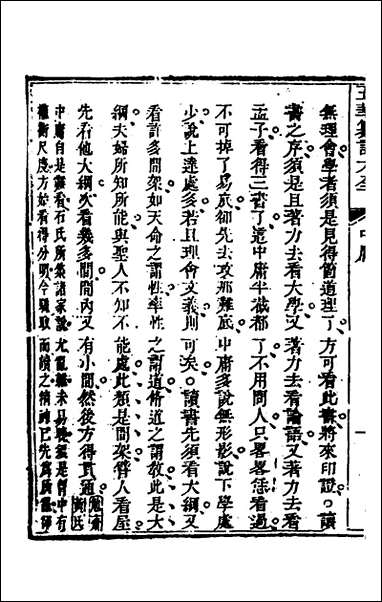 五華纂訂大全 中庸 一
無理會學者須是見得箇道理了方可看此書將來印證。讀
書之序須是且著力去看大學又著力去看論語又著力去看
孟子看得三書了這中庸半截都了不用問人只畧畧恁看過
不可掉了易底卻先去攻那難底中庸多說無形影說下學處
少說上達處多若且理會文義則可矣。讀書先須看大綱又
看許多間架如天命之謂性率性之謂道脩道之謂敎此是大
綱夫婦所知所能與聖人不知不能處此類是間架譬人看屋
先看他大綱次看幾多間間內又有小間然後方得貫通 勉齋黃氏
中庸自是難看石氏所集諸家說尤亂雜未易曉須是胷中有
權衡尺度方始看得分明今驟取而讀之精神已先為所亂卻